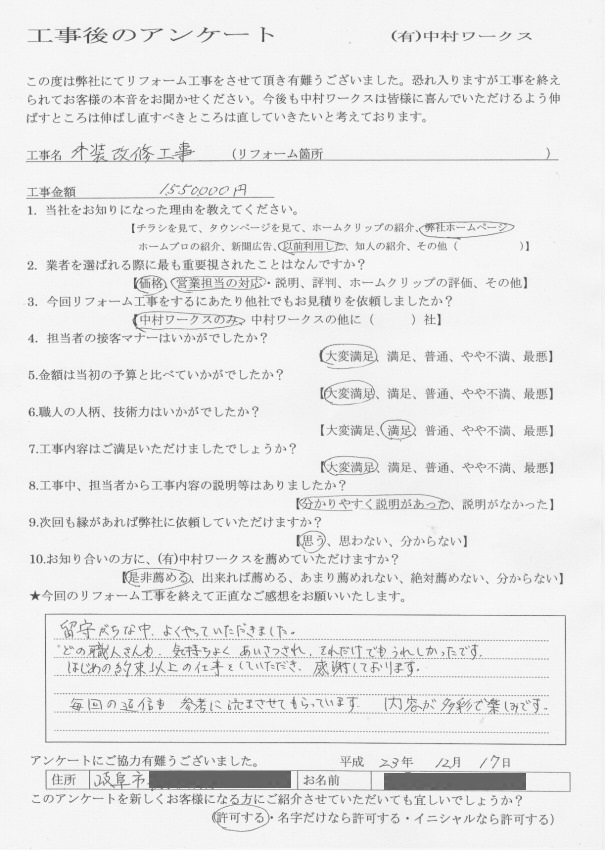 工事後のアンケート (有)中村ワークス
この度は弊社にてリフォーム工事をさせて頂き有難うございました。恐れ入りますが工事を終え
られてお客様の本音をお聞かせください。今後も中村ワークスは皆様に喜んでいただけるよう伸
ばすところは伸ばし直すべきところは直していきたいと考えております。
工事名 外装改修工事 (リフォーム箇所 )
工事金額 1550000円
1. 当社をお知りになった理由を教えてください。
【チラシを見て、タウンページを見て、ホームクリップの紹介、弊社ホームページ
ホームプロの紹介、新聞広告、以前利用した、知人の紹介、その他( )】
2. 業者を選ばれる際に最も重要視されたことはなんですか?
【価格、営業担当の対応・説明、評判、ホームクリップの評価、その他】
3. 今回リフォーム工事をするにあたり他社でもお見積りを依頼しましたか?
【中村ワークスのみ、中村ワークスの他に( )社】
4. 担当者の接客マナーはいかがでしたか?
【大変満足、満足、普通、やや不満、最悪】
5.金額は当初の予算と比べていかがでしたか?
【大変満足、満足、普通、やや不満、最悪】
6.職人の人柄、技術力はいかがでしたか?
【大変満足、満足、普通、やや不満、最悪】
7.工事内容はご満足いただけましたでしょうか?
【大変満足、満足、普通、やや不満、最悪】
8.工事中、担当者から工事内容の説明等はありましたか?
【分かりやすく説明があった、説明がなかった】
9.次回も縁があれば弊社に依頼していただけますか?
【思う、思わない、分からない】
10.お知り合いの方に、(有)中村ワークスを薦めていただけますか?
【是非薦める、出来れば薦める、あまり薦めれない、絶対薦めない、分からない】
★今回のリフォーム工事を終えて正直なご感想をお願いいたします。
留守がちな中、よくやっていただきました。
どの職人さんも、気持ちよく あいさつされ、それだけでもうれしかったです。
はじめの約束以上の仕事をしていただき、感謝しております。
毎回の通信も 参考に読まさせてもらっています。 内容が多彩で楽しみです。
アンケートにご協力有難うございました。 平成 23年 12月 17日
住所 岐阜市 お名前
このアンケートを新しくお客様になる方にご紹介させていただいても宜しいでしょうか?
(許可する・名字だけなら許可する・イニシャルなら許可する)